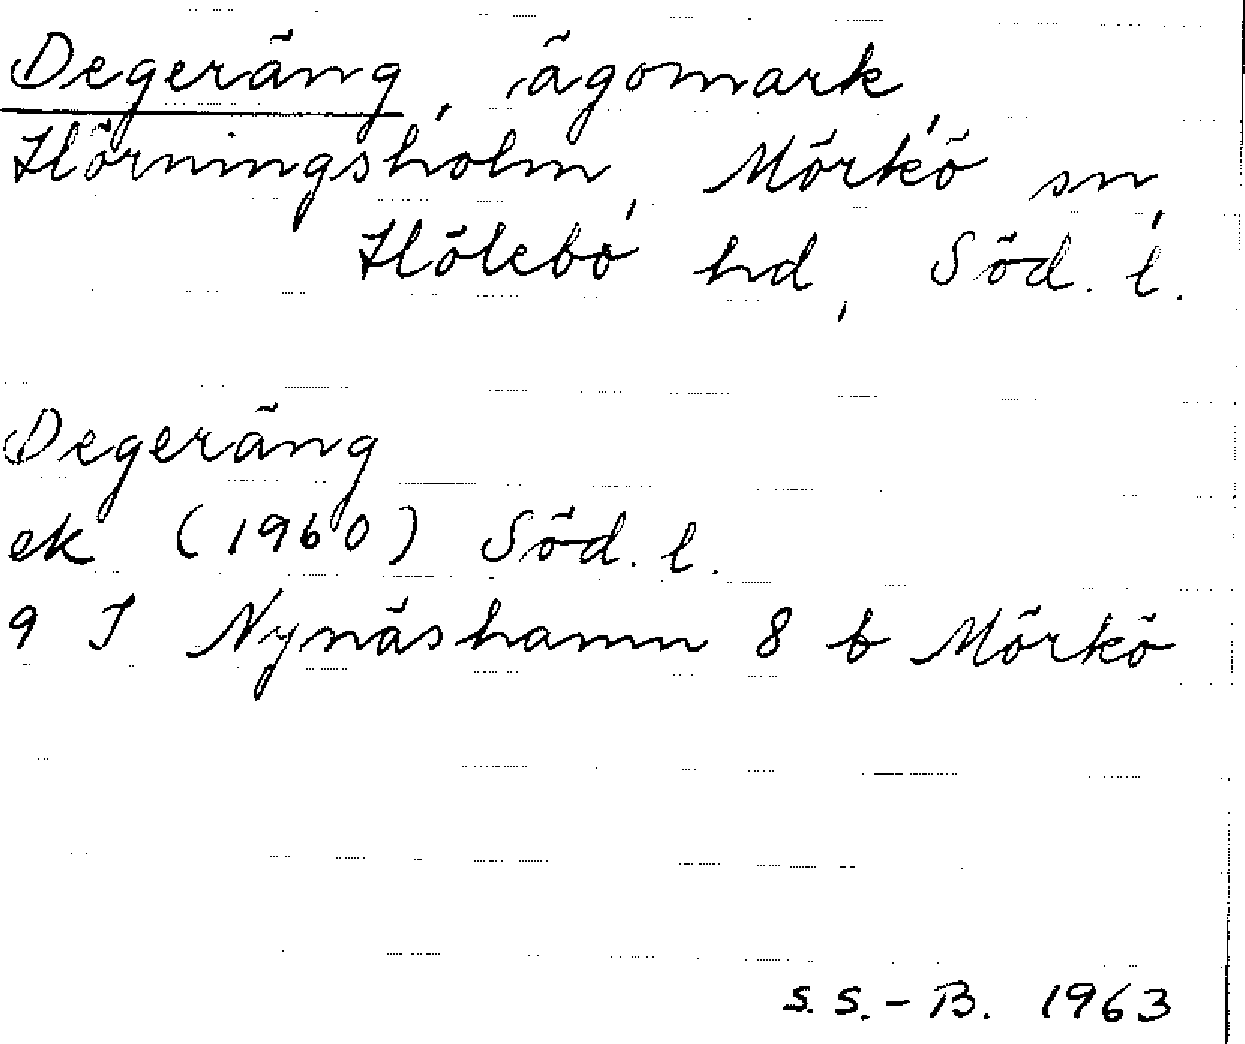 Degeräng, ägomark,
Hörningsholm, Mörkö sn,
Hölebo hd, Söd. l.
Degeräng
ek (1960) Söd. l.
9 I Nynäshamn 8 b Mörkö
S. S.-B. 1963